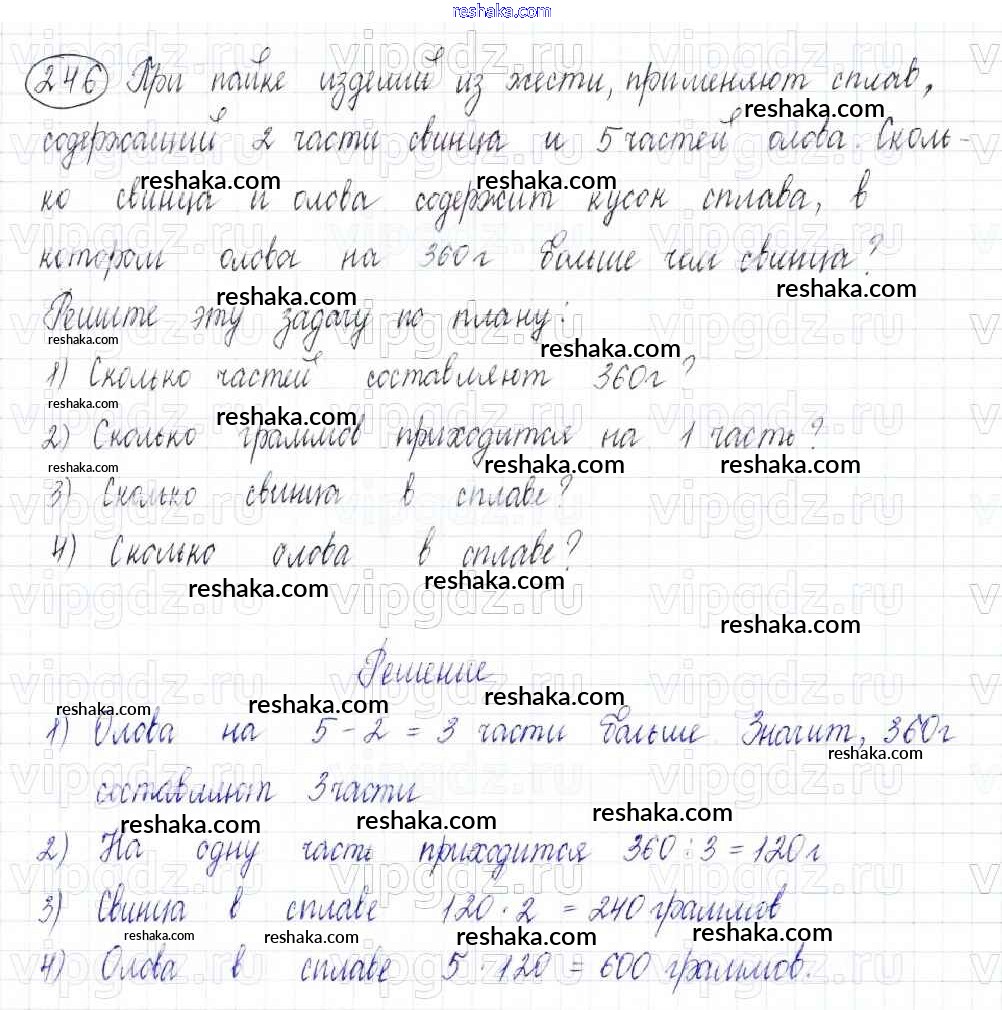 reshaka.com
246 При пайке изделий из жести, применяют сплав,
содержащий 2 части свинца и 5 частей олова. Сколь-
ко свинца и олова содержит кусок сплава, в
котором олова на 360 г больше чем свинца?
Решите эту задачу по плану:
1) Сколько частей составляют 360 г?
2) Сколько граммов приходится на 1 часть?
3) Сколько свинца в сплаве?
4) Сколько олова в сплаве?
Решение
1) Олова на 5 - 2 = 3 части больше. Значит, 360 г
составляют 3 части
2) На одну часть приходится 360 : 3 = 120 г
3) Свинца в сплаве 120 · 2 = 240 граммов
4) Олова в сплаве 5 · 120 = 600 граммов.